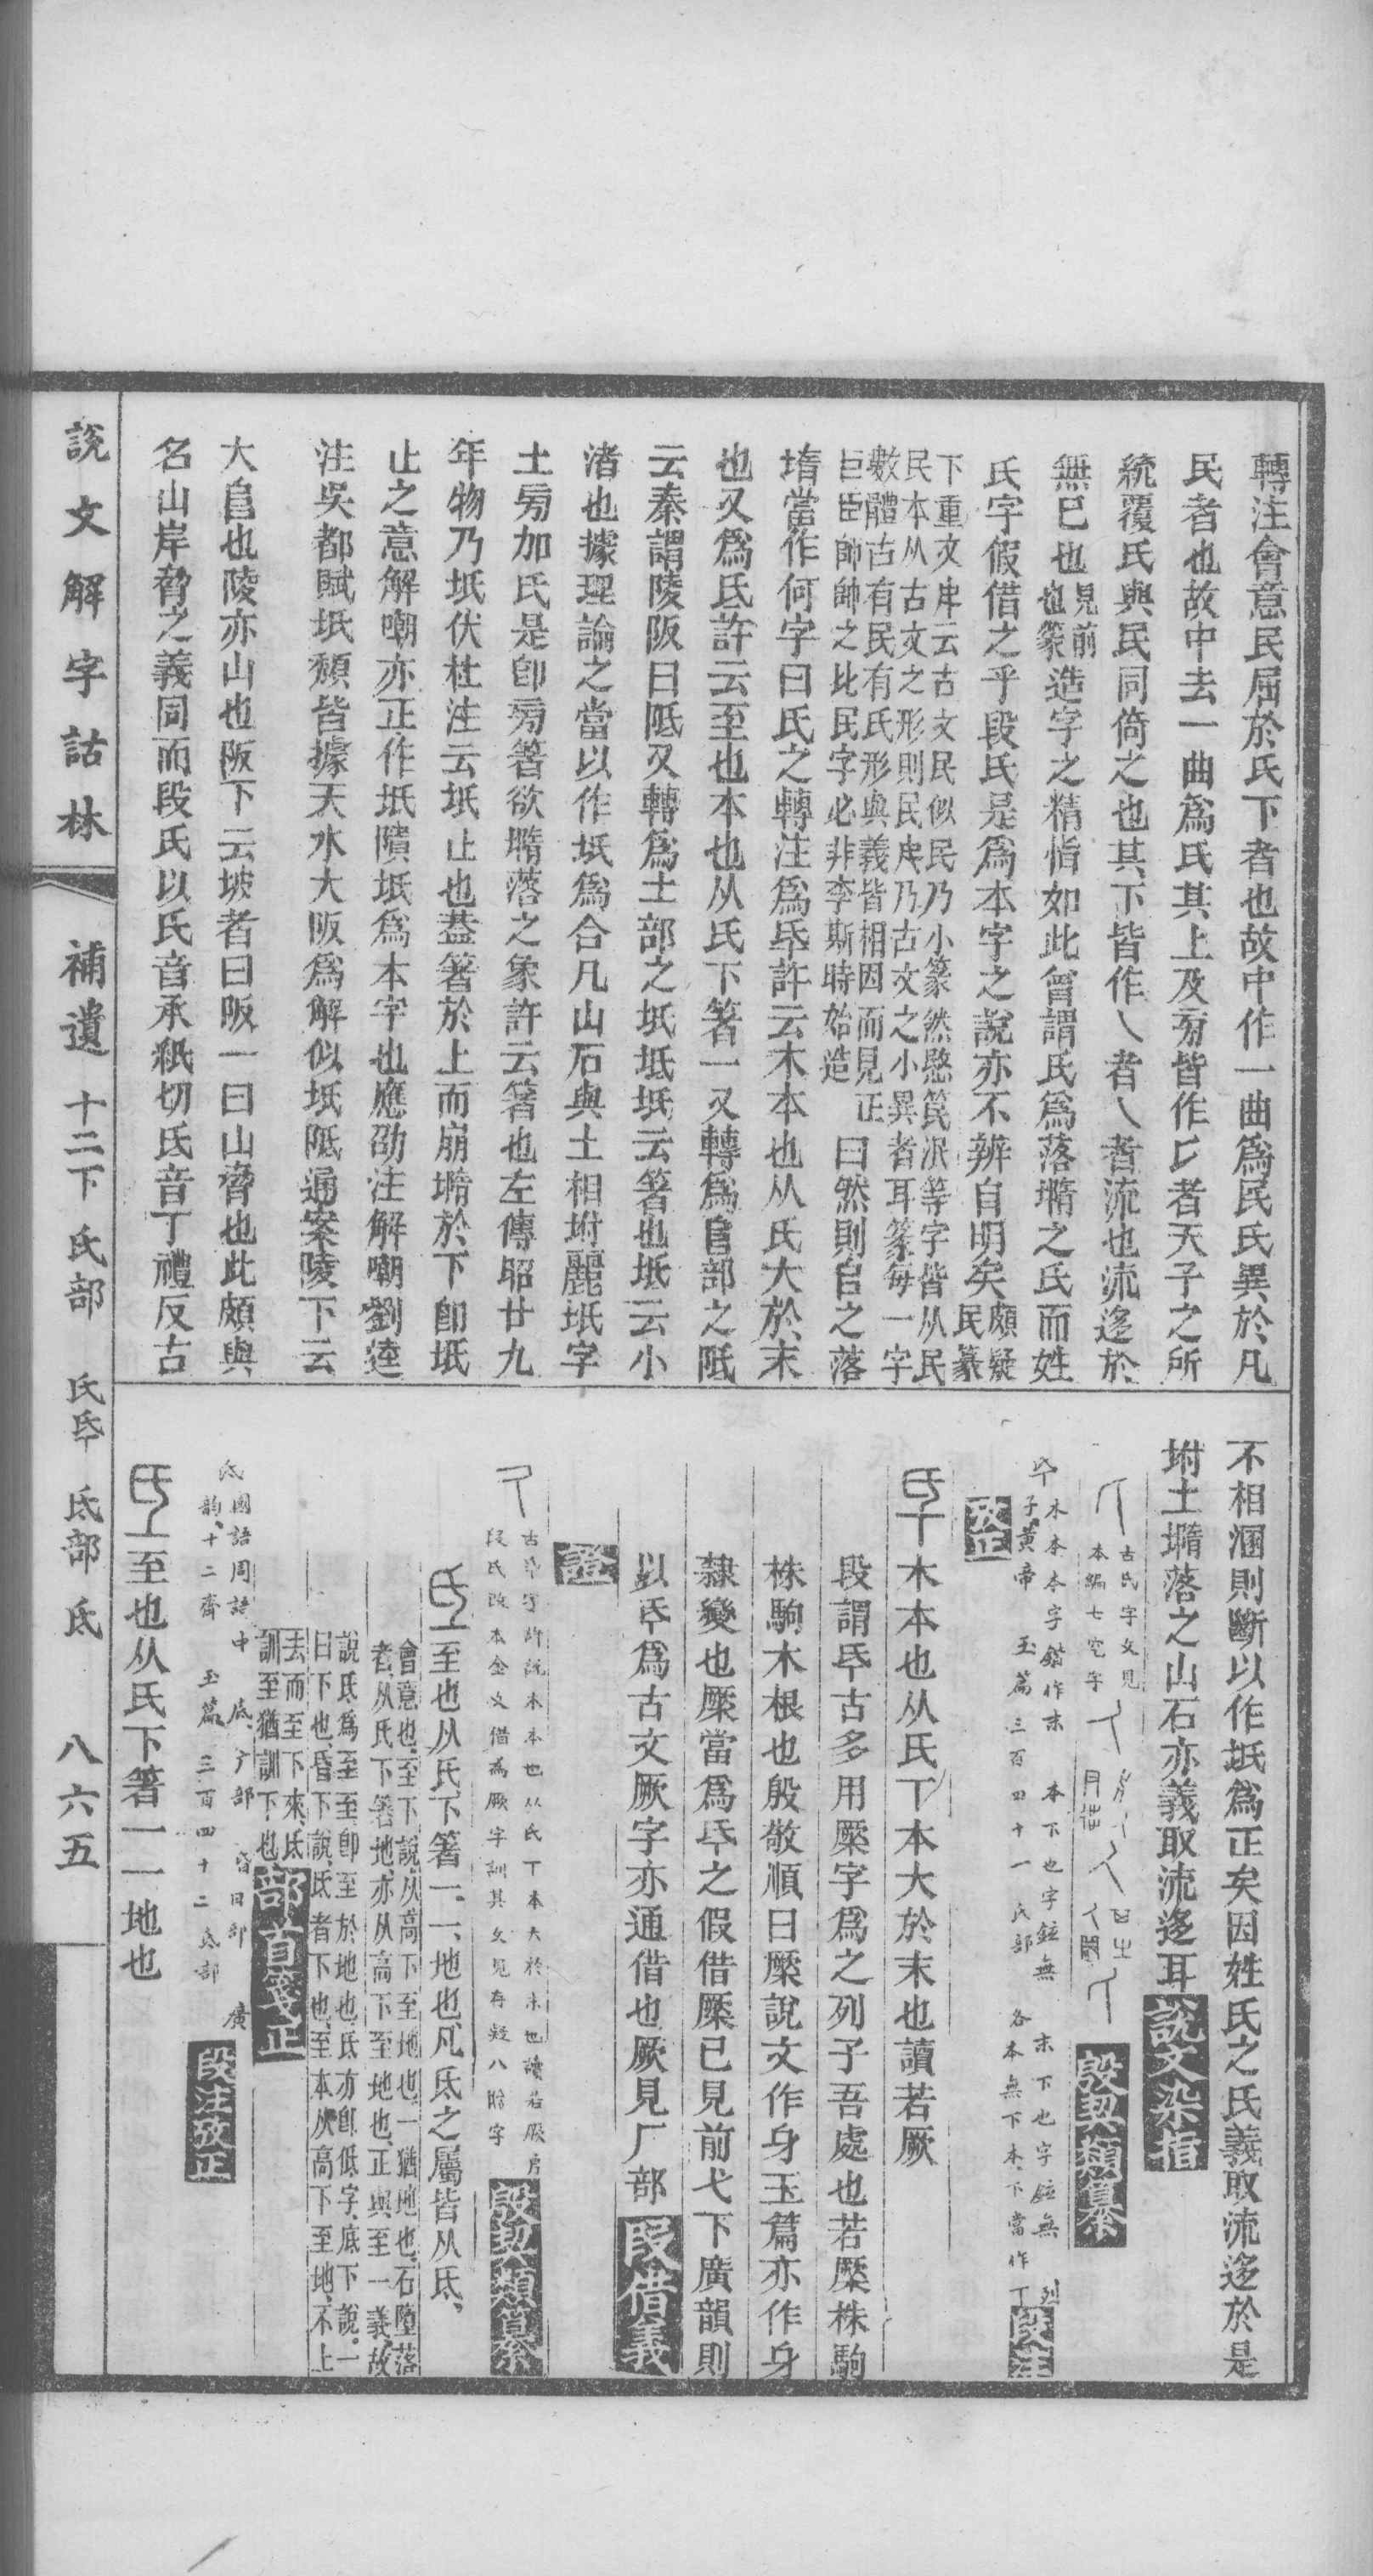 轉注會意民屈於氏下者也故中作一曲爲民氏異於凡
民者也故中去一曲爲氏其上及㫄皆作𠂆者天子之所
統覆氏與民同倚之也其下皆作㇏者㇏者流也流迻於
無已也見前也篆造字之精恉如此曾謂氏爲落墮之氏而姓
氏字假借之乎段氏是爲本字之說亦不辨自明矣頗疑民篆
下重文𡴍云古文民似民乃小篆然愍笢泯等字皆从民
民本从古文之形則民𡴍乃古文之小異者耳篆每一字
數體古有民有氏形與義皆相因而見正
巨𦣞師帥之比民字必非李斯時始造曰然則𠂤之落
墮當作何字曰氏之轉注爲氒許云木本也从氏大於末
也又爲氐許云至也本也从氏下箸一又轉爲𨸏部之阺
云秦謂陵阪曰阺又轉爲土部之坁坻坁云箸也坻云小
渚也據理論之當以作坁爲合凡山石與土相坿麗坁字
土㫄加氏是卽㫄箸欲墮落之象許云箸也左傳昭廿九
年物乃坁伏杜注云坁止也葢箸於上而崩墮於下卽坁
止之意解嘲亦正作坁隤坁爲本字也應劭注解嘲劉逵
注吳都賦坁穨皆據天水大阪爲解似坁阺通案陵下云
大𨸏也陵亦山也阪下云坡者曰阪一曰山脅也此頗與
名山岸脅之義同而段氏以氏音承紙切氐音丁禮反古
不相溷則斷以作坁爲正矣因姓氏之氏義取流迻於是
坿土墮落之山石亦義取流迻耳說文染指
古氏字文見
本編七宅字
殷契類纂
氒 木本本字鍇作末 本下也字鉉無 末下也字鉉無 列
子黃帝 玉篇三百四十一氏部 各本無下本下當作丁段注
攷正
氒木本也从氏丅本大於末也讀若厥
段謂氒古多用橜字爲之列子吾處也若橜株駒
株駒木根也殷敬順曰橜說文作身玉篇亦作身
隸變也橜當爲氒之假借橜已見前弋下廣韻則
以氒爲古文厥字亦通借也厥見厂部段借義
證
古氒字許說木本也从氏丅本大於末也讀若厥
段氏改本金文借爲厥字訓其文見存疑八䝰字殷契類纂
氐至也从氏下箸一一地也凡氐之屬皆从氐
會意也至下說从高下至地也一猶地也石墮落
者从氏下箸地亦从高下至地也正與至一義故
說氐爲至至卽至於地也氐亦卽低字底下說一
曰下也昏下說氐者下也至本从高下至地不上
去而至下來氐
訓至猶訓下也部首箋正
氐 國語周語中 底广部 昏日部 廣
韵十二齊 玉篇三百四十二氐部段注攷正
氐至也从氏下箸一一地也
說文解字詁林 補遺 十二下 氏部 氏氒 氐部 氐 八六五